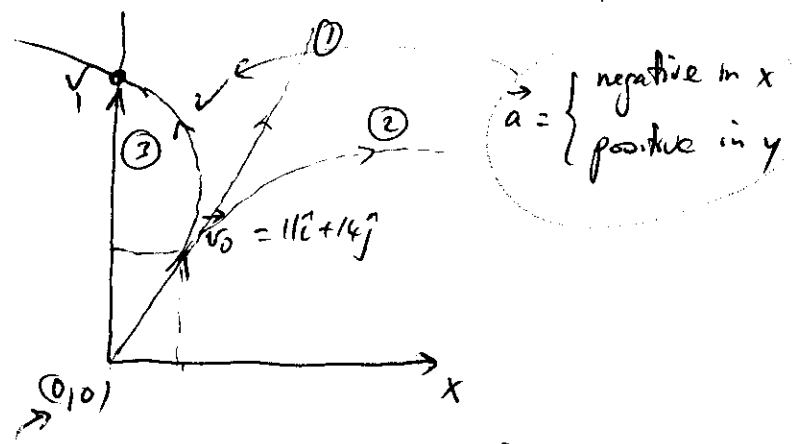 ①
②
③
v₁
v⃗₀ = 11î + 14ĵ
a⃗ = { negative in x
positive in y
(0,0)
x